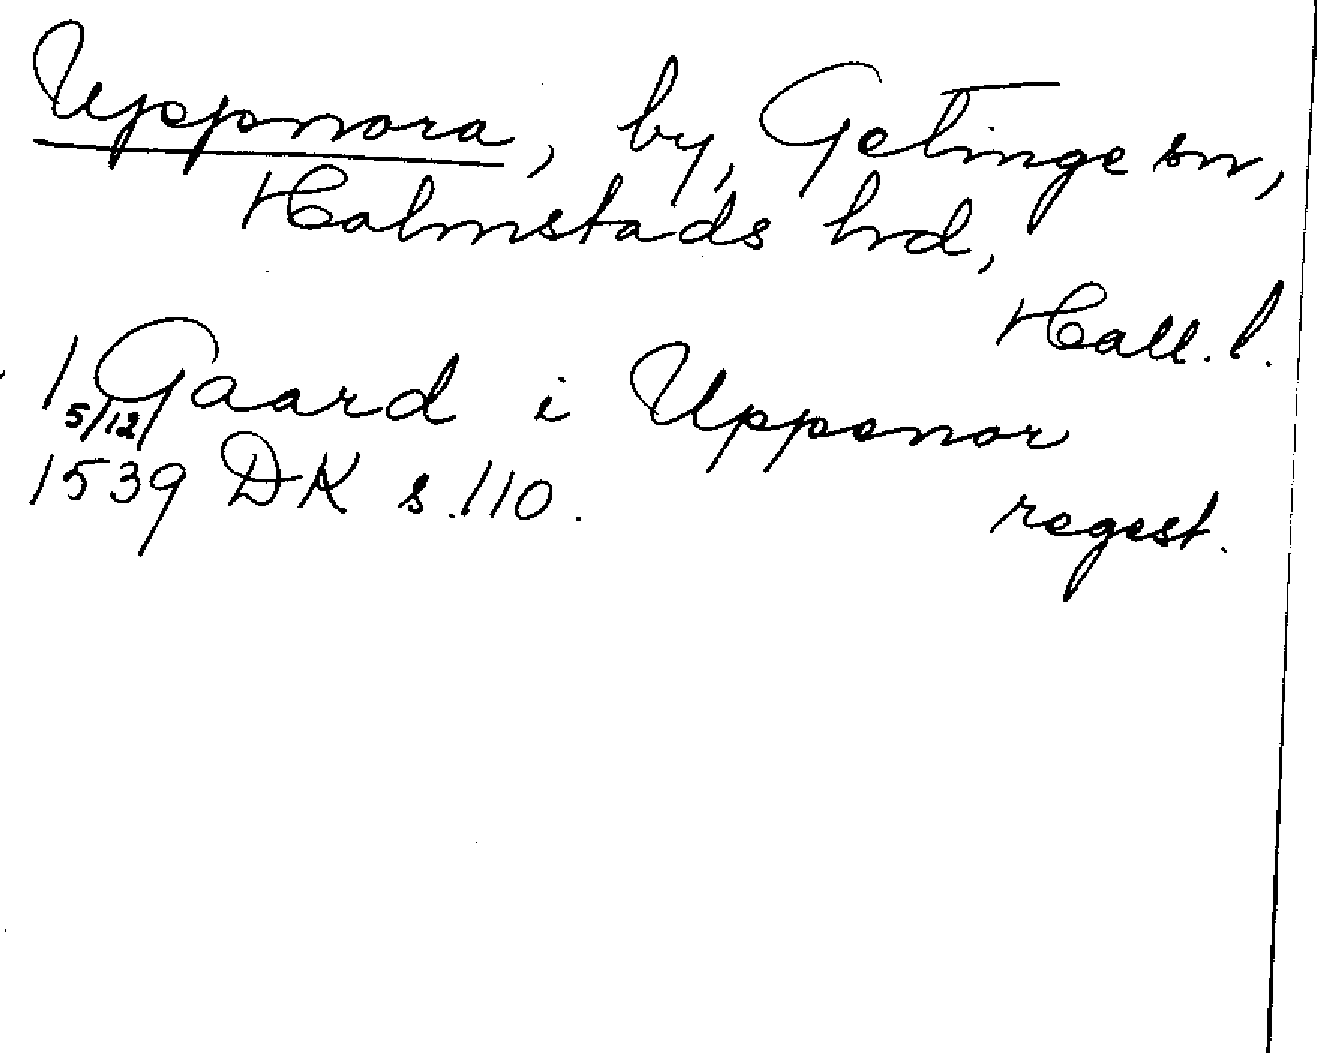 Uppnora, by, Getinge sn,
Halmstads hrd,
Hall. l.
1 Gaard i Uppenor
5/12
1539 DK s. 110.
regest.